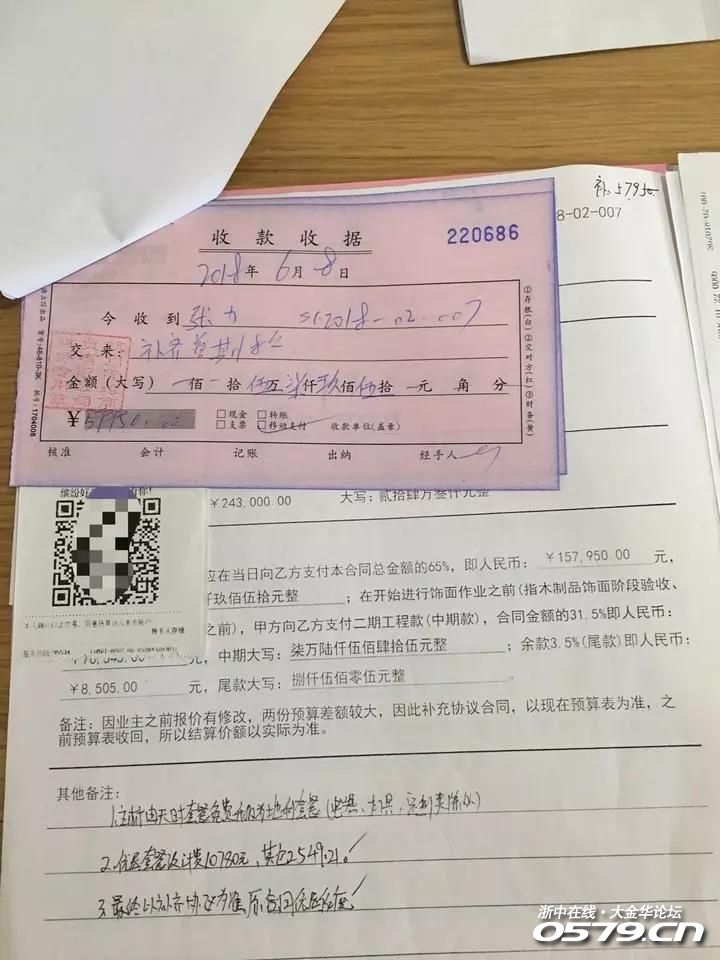 补:57950
8-02-007
收款收据
220686
2018年6月8日
今收到 张力 SL2018-02-007
交来: 补齐首期款
金额(大写) 佰 拾伍万柒仟玖佰伍拾 元 角 分
¥57950.00
□现金 □转账
□支票 □移动支付 收款单位(盖章)
核准 会计 记账 出纳 经手人
①存根(白)②交对方(红)③财务(黄)
货号:48-810-3K 批号:1704008
缤纷好 你!
¥243,000.00 大写:贰拾肆万叁仟元整
应在当日向乙方支付本合同总金额的65%,即人民币: ¥157,950.00 元,
仟玖佰伍拾元整 ;在开始进行饰面作业之前(指木制品饰面阶段验收、
之前),甲方向乙方支付二期工程款(中期款),合同金额的31.5%即人民币:
元,中期大写:柒万陆仟伍佰肆拾伍元整 ;余款3.5%(尾款)即人民币:
¥8,505.00 元,尾款大写:捌仟伍佰零伍元整 。
持卡人存根
备注:因业主之前报价有修改,两份预算差额较大,因此补充协议合同,以现在预算表为准,之
前预算表收回,所以结算价额以实际为准。
其他备注:
1.主材由天时套餐免费升级为地利套餐
2.优居套餐设计费10780元,其它2549.21。✓
3.最终以补充协议为准,原合同
浙中在线·大金华论坛
0579.cn